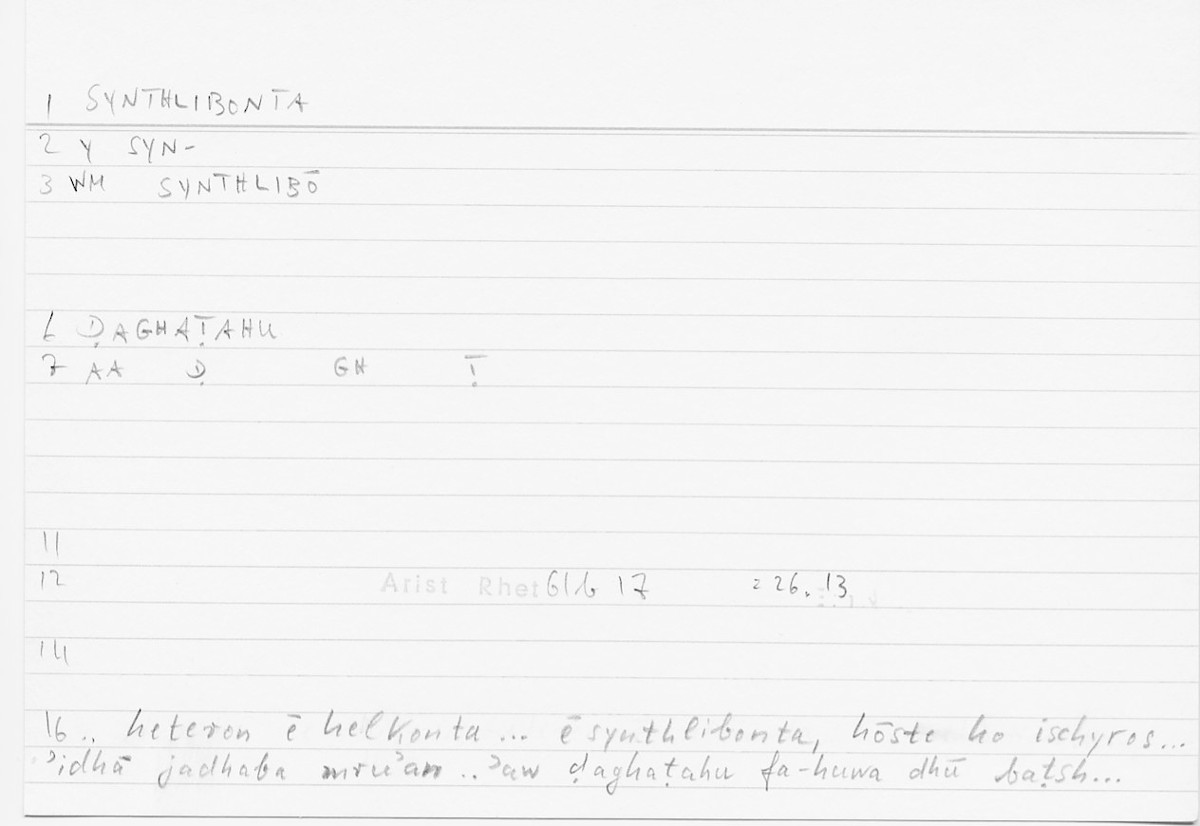 1 SYNTHLIBONTA
2 Y SYN-
3 WM SYNTHLIBŌ
6 ḌAGHAṬAHU
7 AA Ḍ GH Ṭ
11
12 Arist Rhet 61b 17 = 26.13
14
16.. heteron ē helkonta ... ē synthlibonta, hōste ho ischyros...
ʾidhā jadhaba mruʾan .. ʾaw ḍaghaṭahu fa-huwa dhū baṭsh...